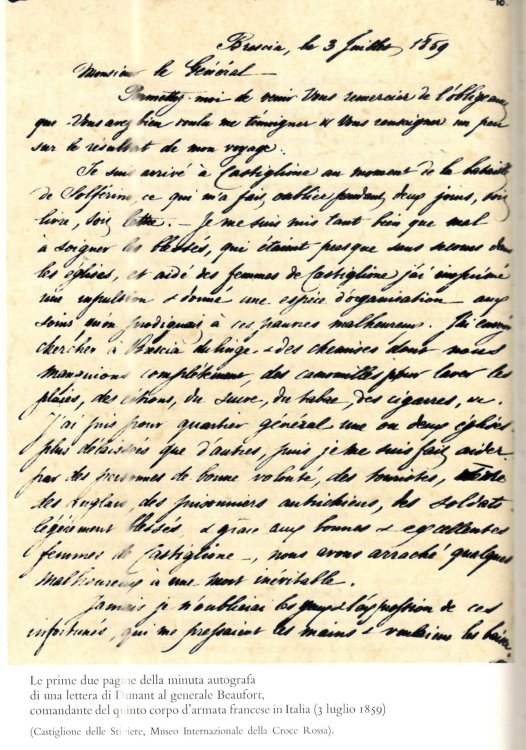 10.
Brescia, le 3 Juillet, 1859
Monsieur le Général —
Permettez-moi de venir Vous remercier de l'obligeance
que Vous avez bien voulu me témoigner & Vous renseigner un peu
sur le résultat de mon voyage.
Je suis arrivé à Castiglione au moment de la bataille
de Solférino, ce qui m'a fait oublier pendant deux jours, soit
livre, soit lettre. — Je me suis mis tant bien que mal
à soigner les blessés, qui étaient presque sans secours dans
les églises, et aidé des femmes de Castiglione j'ai imprimé
une impulsion & donné une espèce d'organisation aux
soins qu'on prodiguait à ces pauvres malheureux. J'ai envoyé
chercher à Brescia du linge, & des chemises dont nous
manquions complètement, des camomilles pour laver les
plaies, des citrons, du sucre, du tabac, des cigarres, &c.
J'ai pris pour quartier général une ou deux églises
plus délaissées que d'autres, puis je me suis fait aider
par des personnes de bonne volonté, des touristes,
des Anglais, des prisonniers autrichiens, des soldats
légèrement blessés, & grâce aux bonnes & excellentes
femmes de Castiglione, nous avons arraché quelques
malheureux à une mort inévitable.
Jamais je n'oublierai les l'expression de ces
infortunés, qui me pressaient les mains & voulaient les baiser
Le prime due pagine della minuta autografa
di una lettera di Dunant al generale Beaufort,
comandante del quinto corpo d'armata francese in Italia (3 luglio 1859)
(Castiglione delle Stiviere, Museo Internazionale della Croce Rossa).